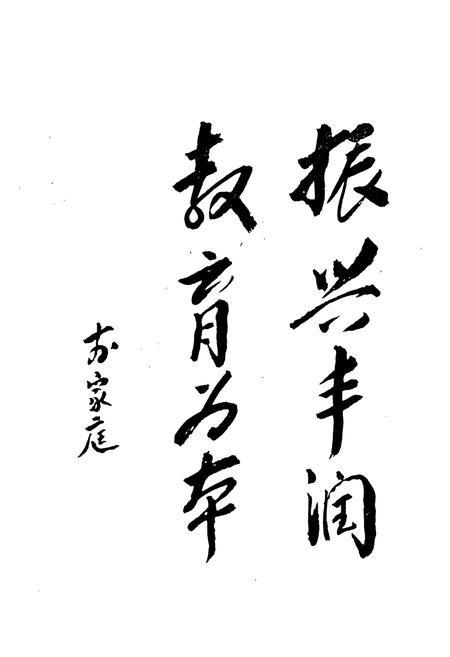 振兴丰润
教育为本
家庭